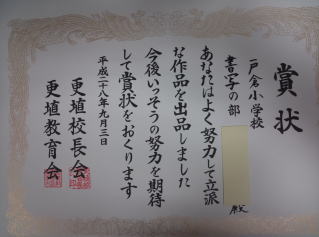 賞状
戸倉小学校
書写の部
殿
あなたはよく努力して立派
な作品を出品しました
今後いっそうの努力を期待
して賞状をおくります
平成二十八年九月三日
更埴校長会
更埴教育会